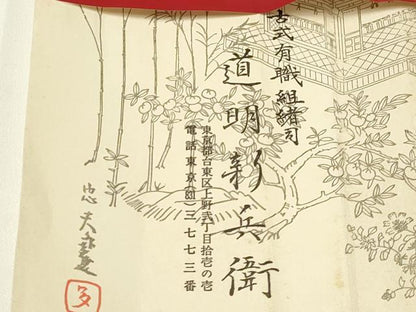 古式有職組緒司
道明新兵衛
東京都台東区上野弐丁目拾壱の壱
電話東京(831)三七七三番
忠夫画